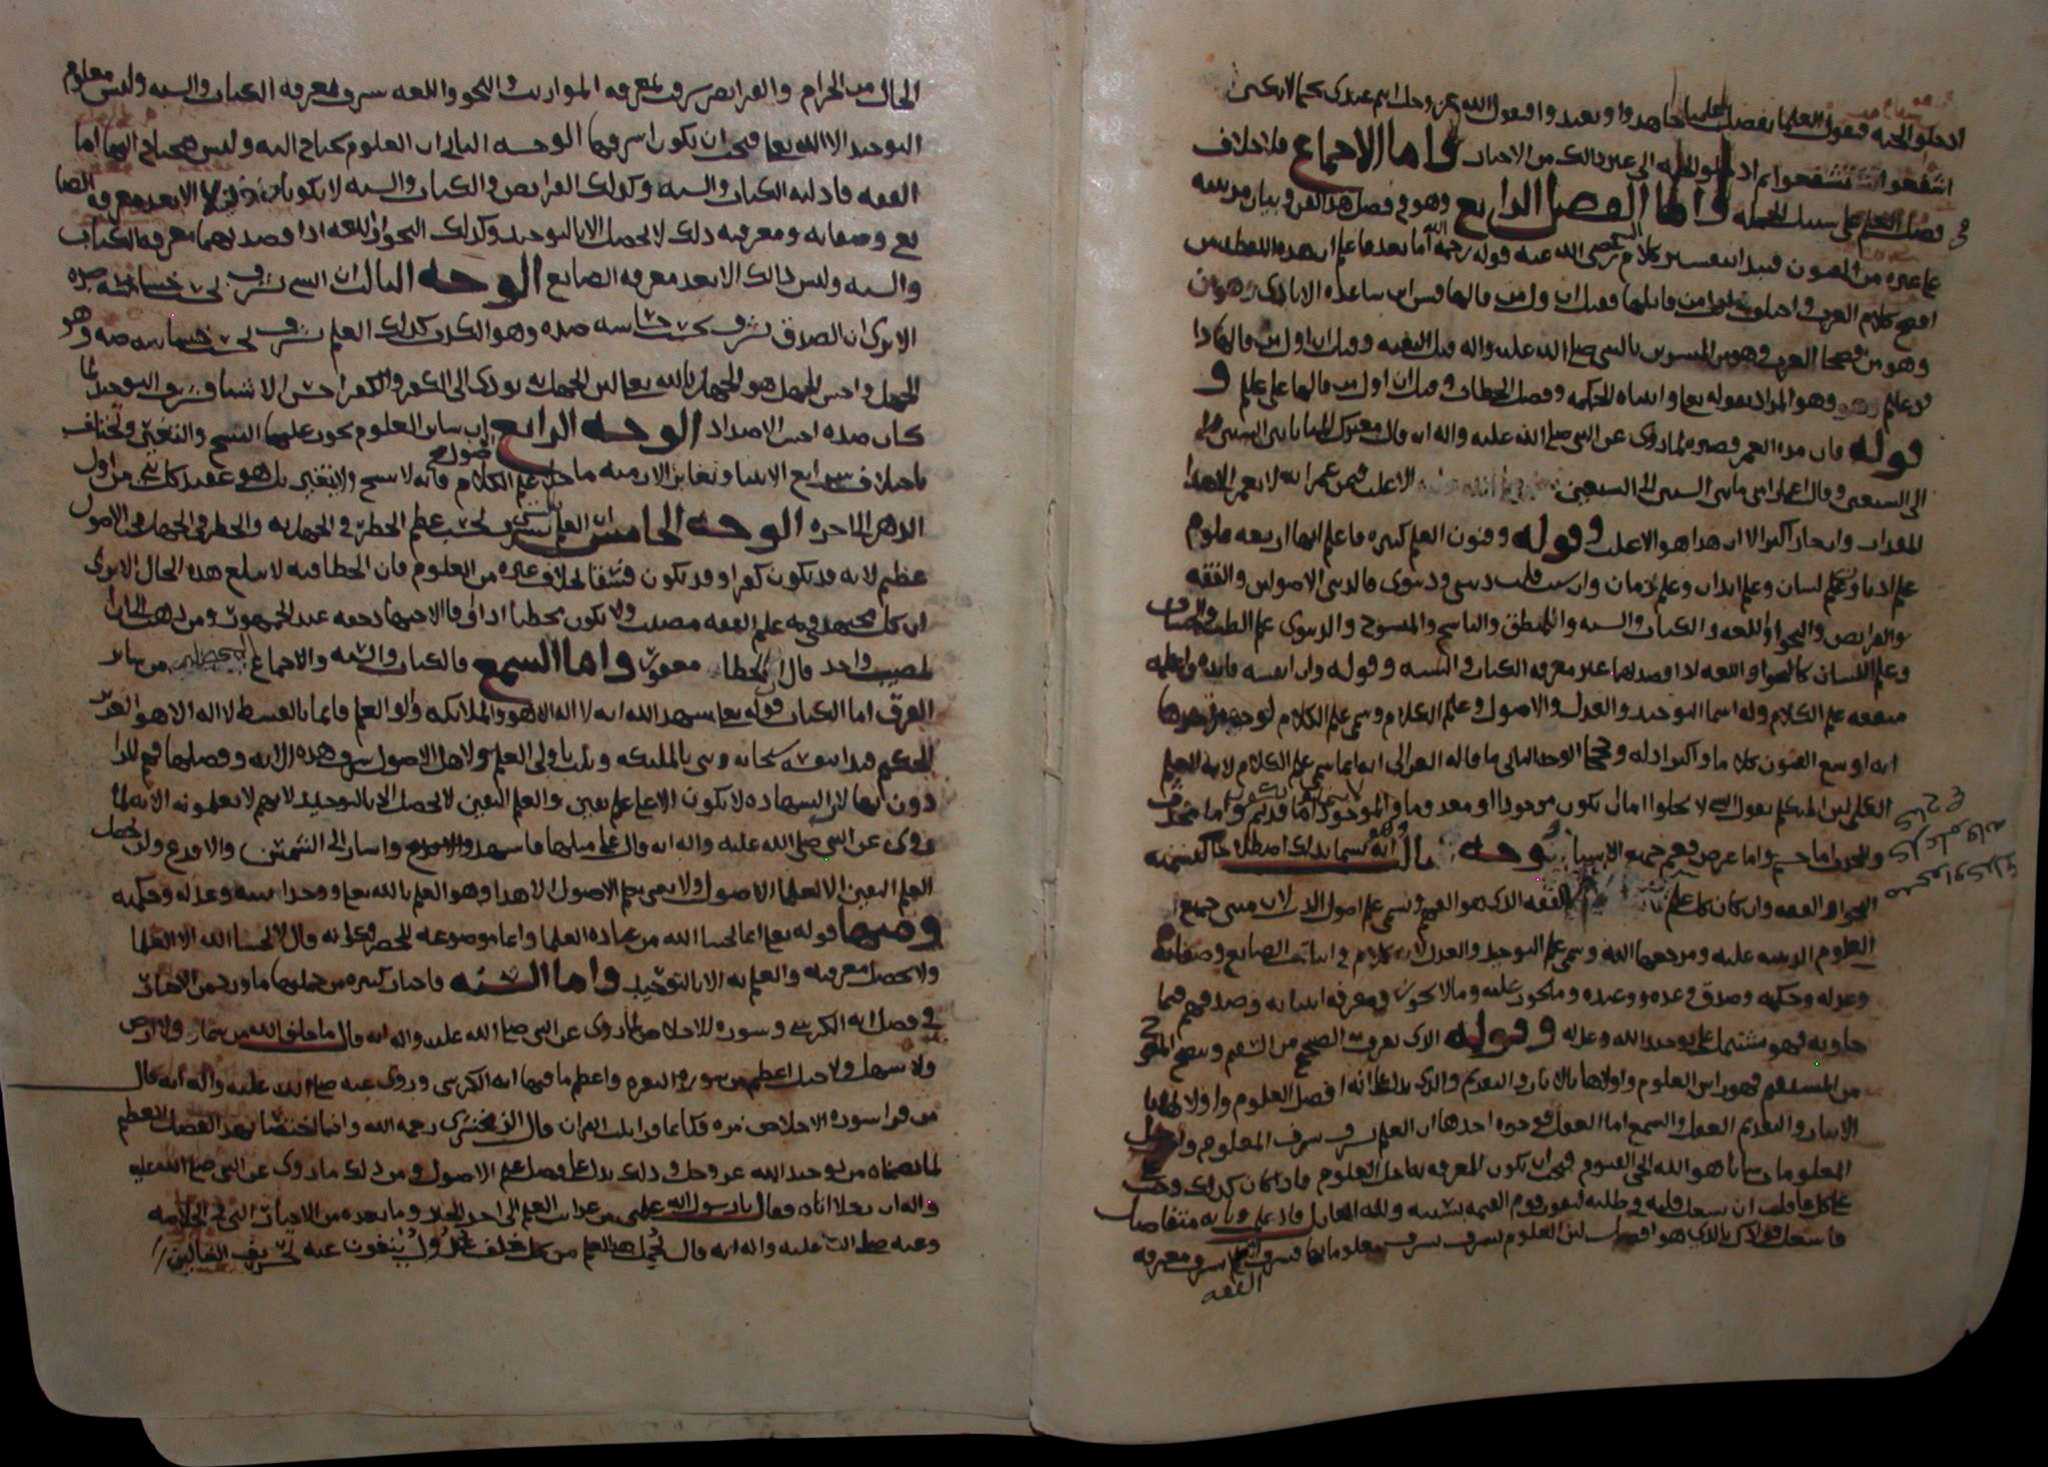 ادخلوا الجنه فيقول العلما بفضل علمنا جاهدوا وتعبدوا فيقول الله عز وجل انتم عندي
اشفعوا تشفعوا ثم ادخلوا الجنه الى غير ذلك من الاخبار واما الاجماع فلا خلاف
في فضل العلم على سبيل الجمله واما الفصل الرابع وهو في فضل هذا الفن وبيان مزيته
على غيره من الفنون فيبدا بتفسير كلام رضي الله عنه قوله رحمه الله اما بعد فاعلم ان هذه اللفظه من
افصح كلام العرب واختلفوا من قائلها فقيل ان اول من قالها قس ابن ساعده الايادي وهو من
وهو من فصحا العرب وهو من المبشرين بالنبي صلى الله عليه واله قبل البعثه وقيل ان اول من قالها داود
عليه وهو المراد بقوله تعالى واتيناه الحكمه وفصل الخطاب وقيل ان اول من قالها علي عليلم و
قوله فان مدة العمر قصيره لما روي عن النبي صلى الله عليه واله انه قال معترك المنايا بين الستين
الى السبعين وقال اعمار امتي ما بين الستين الى السبعين الا على من عمر انه لا يعمر الا هذا
المقدار وان جاز اكثر الا ان هذا هو الاغلب وقوله وفنون العلم كثيره فاعلم انها اربعه علوم
علم اديان وعلم لسان وعلم ابدان وعلم ازمان وان شئت قلت ديني ودنيوي فالديني الاصولين والفقه
والفرايض والنحو واللغه والكتاب والسنه والمنطق والناسخ والمنسوخ والدنيوي علم الطب والحساب
وعلم اللسان كالنحو واللغه اذا قصد بهما غير معرفه الكتاب والسنه وقوله وان انفسه فايده واعلمه
منفعه علم الكلام وله اسما التوحيد والعدل والاصول وعلم الكلام وسمي علم الكلام لوجوه احدها
انه اوسع الفنون كلاما واكثر ادله وحججا الوجه الثاني ما قاله الغزالي انه انما سمي علم الكلام لانه العلم
الكلي لان المتكلم يقول الشي لا يخلوا اما ان يكون موجودا او معدوما والموجود اما قديم واما محدث
والمحدث اما جسم واما عرض فعم جميع الاشيا توجه قال انه يسما بذلك اصطلاحا كتسميه
النحو والفقه وان كان كل علم الفقه الذي هو الفهم وسمي علم اصول الدين لان مبنى جميع
العلوم الدينيه عليه ومرجعها اليه وسمي علم التوحيد والعدل لانه كلام في اثبات الصانع وصفاته
وعدله وحكمته وصدق وعده ووعيده وما يجوز عليه وما لا يجوز ومعرفه انبيائه وصدقهم فيما
جاوا به فهو مشتمل على توحيد الله وعدله وقوله الذي يعرف الصحيح من السقيم ويتضح المعوج
من المستقيم فهو راس العلوم واولاها بالايثار والتقديم والذي يدل على انه افضل العلوم واولاها
الايثار والتقديم العقل والسمع اما العقل فوجوه احدها ان العلم يشرف بشرف المعلوم
المعلومات باسرها هو الله الحي القيوم فيجب ان تكون المعرفه به اجل العلوم فاذا كان كذلك وجب
على كل عاقل ان يشغل قلبه في طلبه ليفوز يوم القيمه بسببه ولله القايل
فاشغل فوادك بالذي هو افضل لان العلوم تشرف بشرف معلوماتها فشرف العلم بشرف معرفه
الفقه
الحلال من الحرام والفرايض شرف لمعرفه المواريث والنحو واللغه شرف لمعرفه الكتاب والسنه وليس معلوم
التوحيد الا الله تعالى فيجب ان يكون اشرفها الوجه الثاني ان العلوم تحتاج اليه وليس هو يحتاج اليها اما
الفقه فادلته الكتاب والسنه وكذلك الفرايض والكتاب والسنه لا يكونان دليلا الا بعد معرفه الصانع
تع وصفاته ومعرفته ذلك لا تحصل الا بالتوحيد وكذلك النحو واللغه اذا قصد بهما معرفه الكتاب
والسنه وليس ذلك الا بعد معرفه الصانع الوجه الثالث ان الشي يشرف بحسب خساسه ضده
الا ترى ان الصدق يشرف بحسب خساسه ضده وهو الكذب كذلك العلم يشرف بحسب خساسه ضده وهو
الجهل واخس الجهل هو الجهل بالله تعالى لان الجهل به يودي الى الكفر والكفر اخس الاشيا فشرف التوحيد لما
كان ضده اخس الاضداد الوجه الرابع ان ساير العلوم يجوز عليها النسخ والتغير وتختلف
باختلاف شرايع الانبيا وتغاير الازمنه ما خلا علم الكلام فانه لا ينسخ ولا يتغير بل هو عقيد كل نبي من اول
الدهر الى اخره الوجه الخامس ان العلم يشرف بحسب عظم الخطر في الجهل به والخطر في الجهل في الاصول
عظيم لانه قد يكون كفرا وقد يكون فسقا بخلاف غيره من العلوم فان الخطا فيه لا يبلغ هذه الحال الا ترى
ان كل مجتهد في علم الفقه مصيب ولا يكون مخطيا اذا وفا الاجتهاد حقه عند الجمهور ومن ذهب الى ان
المصيب واحد قال ان الخطا معفو واما السمع فالكتاب والسنه والاجماع من ساير
الفرق اما الكتاب فقوله تعالى شهد الله انه لا اله الا هو والملائكه واولو العلم قائما بالقسط لا اله الا هو العزيز
الحكيم فبدا بنفسه سبحانه وثنى بالمليكه وثلث باولي العلم ولاهل الاصول شرف هذه الايه وفضلها فهم المراد
دون غيرهم لان الشهاده لا تكون الا على علم يقين والعلم اليقين لا يحصل الا بالتوحيد لانهم لا يعلمونه الا به لما
روي عن النبي صلى الله عليه واله انه قال على مثلها فاشهد واشار الى الشمس والا فدع ولن يحصل
العلم اليقين الا لعلما الاصول ولا نعني بعلم الاصول الا هذا وهو العلم بالله تعالى ووحدانيته وعدله وحكمته
ومنها قوله تعالى انما يخشا الله من عباده العلما وانما موضوعه للحصر فكانه قال لا يخشا الله الا العلما
ولا تحصل معرفته والعلم به الا بالتوحيد واما السنه فاخبار كثيره من جملتها ما ورد من الاخبار
في فضل ايه الكرسي وسوره الاخلاص لما روي عن النبي صلى الله عليه واله انه قال ما خلق الله من سما ولا ارض
ولا سهل ولا جبل اعظم من سوره البقره واعظم ما فيها ايه الكرسي وروي عنه صلى الله عليه واله انه قال
من قرا سوره الاخلاص مره فكانما قرا ثلث القران قال الزمخشري رحمه الله وانما اختصا بهذا الفضل العظيم
لما تضمناه من توحيد الله عز وجل وذلك يدل على فضل علم الاصول ومن ذلك ما روي عن النبي صلى الله عليه
واله ان رجلا اتاه فقال يا رسول الله علمني من غرايب العلم الى اخر الخبر وما بعده من الاخبار التي في الخلاصه
وعنه صلى الله عليه واله انه قال يحمل هذا العلم من كل خلف عدول ينفون عنه تحريف الغالين